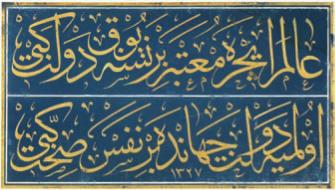 عالم ایچره معتبر بر نسنه یوق دولت کبی
اولمیه دولت جهانده بر نفس صحت کبی
١٣٢٧